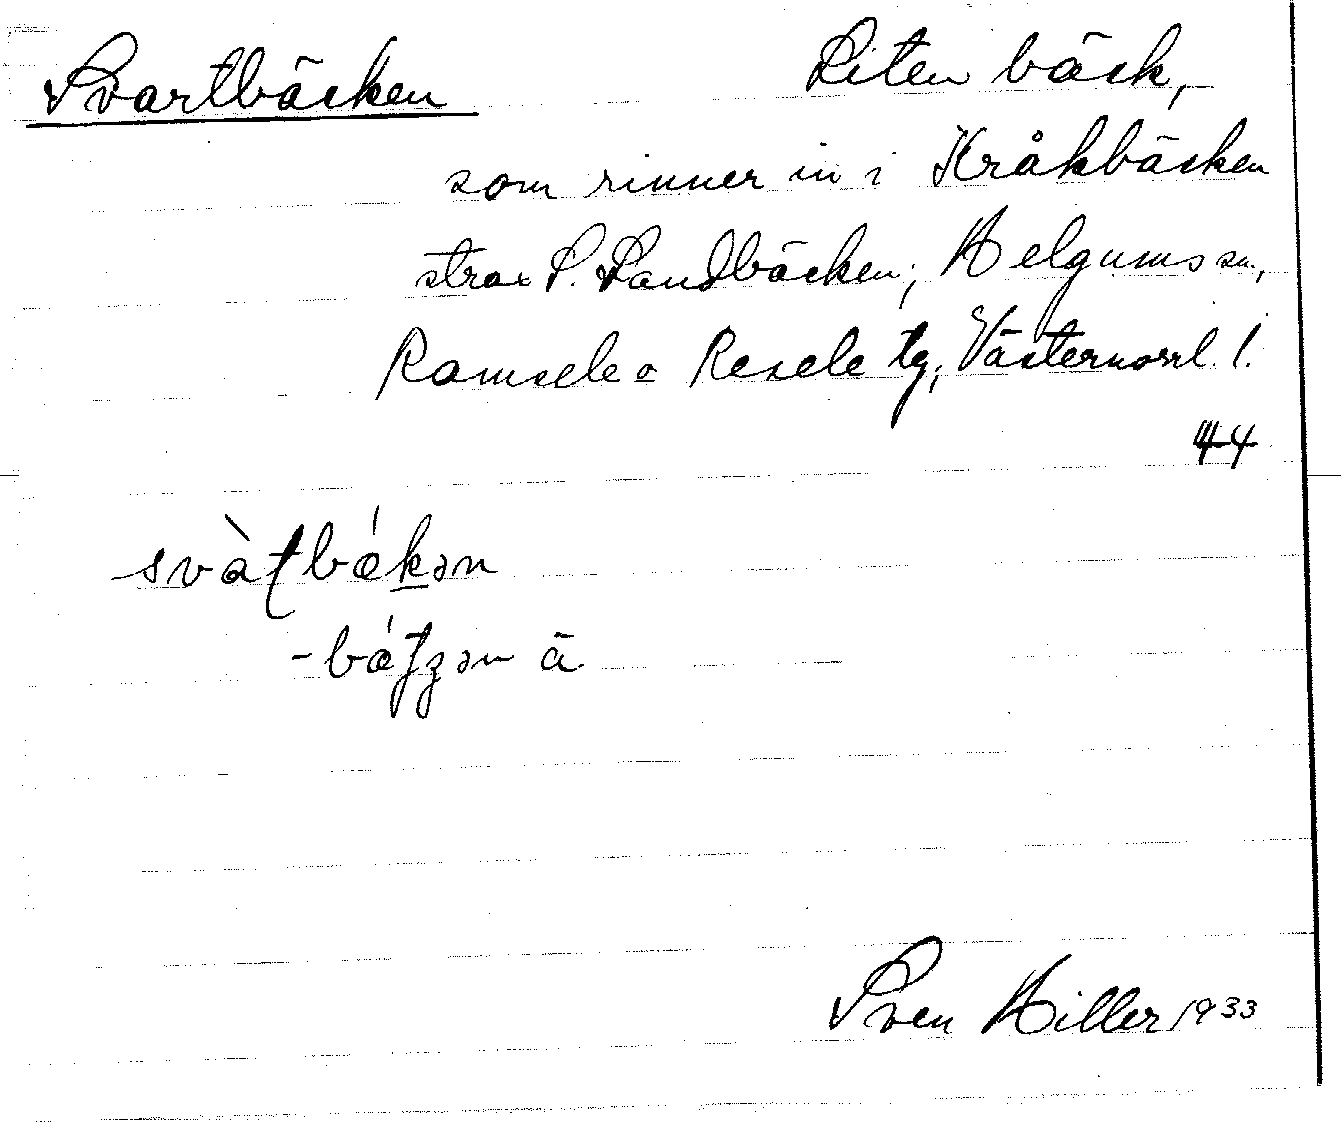 Svartbäcken Liten bäck,
som rinner in i Kråkbäcken
strax S. Sandbäcken, Helgums sn,
Ramsele o Resele tg, Västernorrl. l.
44
svàʈbǽkən
-bǽ ən ä
Sven Hiller 1933